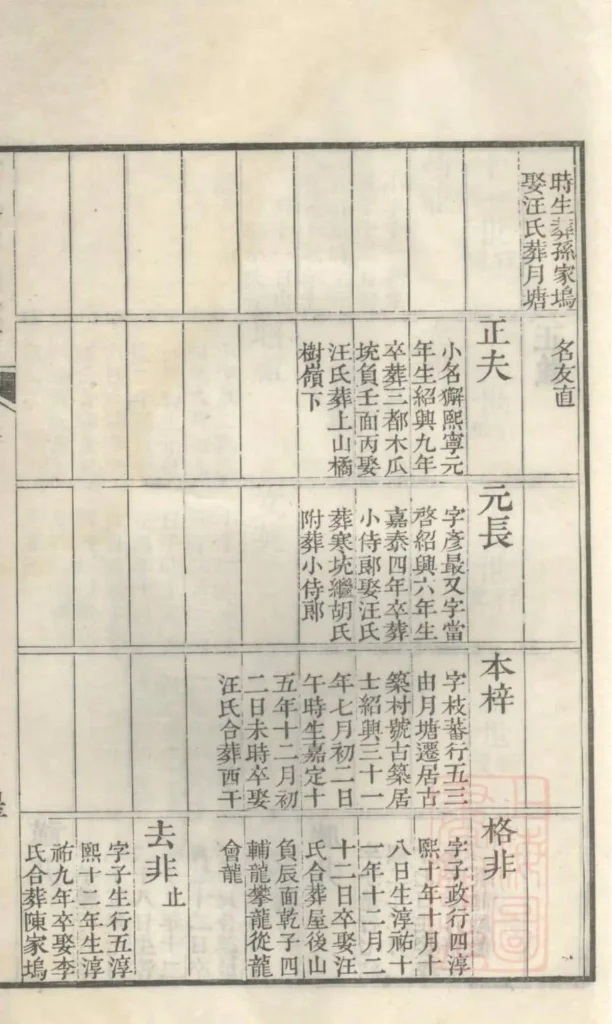 時生葬孫家塢
娶汪氏葬月塘
名友直
正夫
小名獬熙寧元
年生紹興九年
卒葬三都木瓜
坑負壬面丙娶
汪氏葬上山橘
樹嶺下
元長
字彥最又字當
啓紹興六年生
嘉泰四年卒葬
小侍郎娶汪氏
葬寒坑繼胡氏
附葬小侍郎
本梓
字枝蕃行五三
由月塘遷居古
築村號古築居
士紹興三十一
年七月初二日
午時生嘉定十
五年十二月初
二日未時卒娶
汪氏合葬西干
格非
字子政行四淳
熙十年十月十
八日生淳祐十
一年十二月二
十二日卒娶汪
氏合葬屋後山
負辰面乾子四
輔龍攀龍從龍
會龍
去非止
字子生行五淳
熙十二年生淳
祐九年卒娶李
氏合葬陳家塢